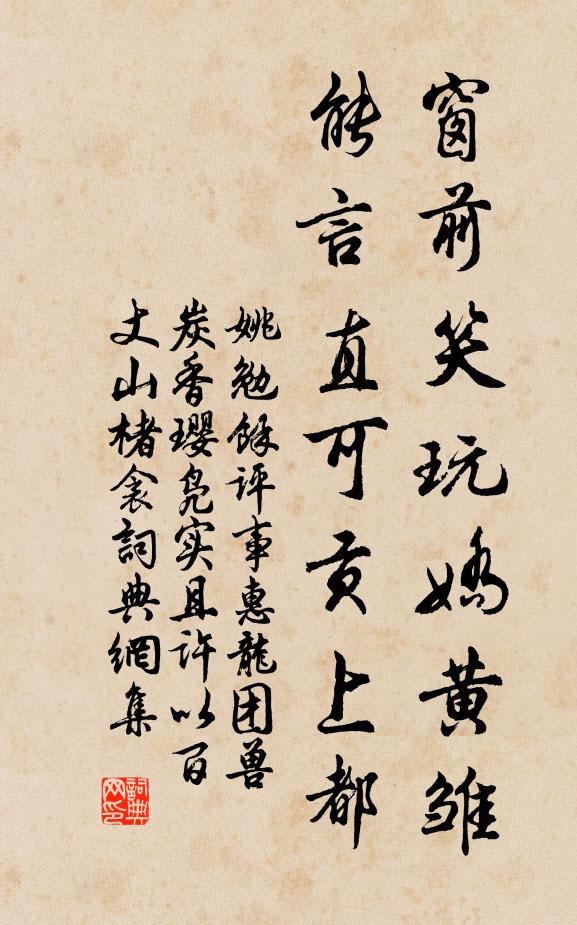 窗前笑玩嬌黃雏
能言直可贡上都
姚勉餘评事惠龍团兽
炭香璎凫实且许以百
丈山楮衾詞典網集
詞典网印